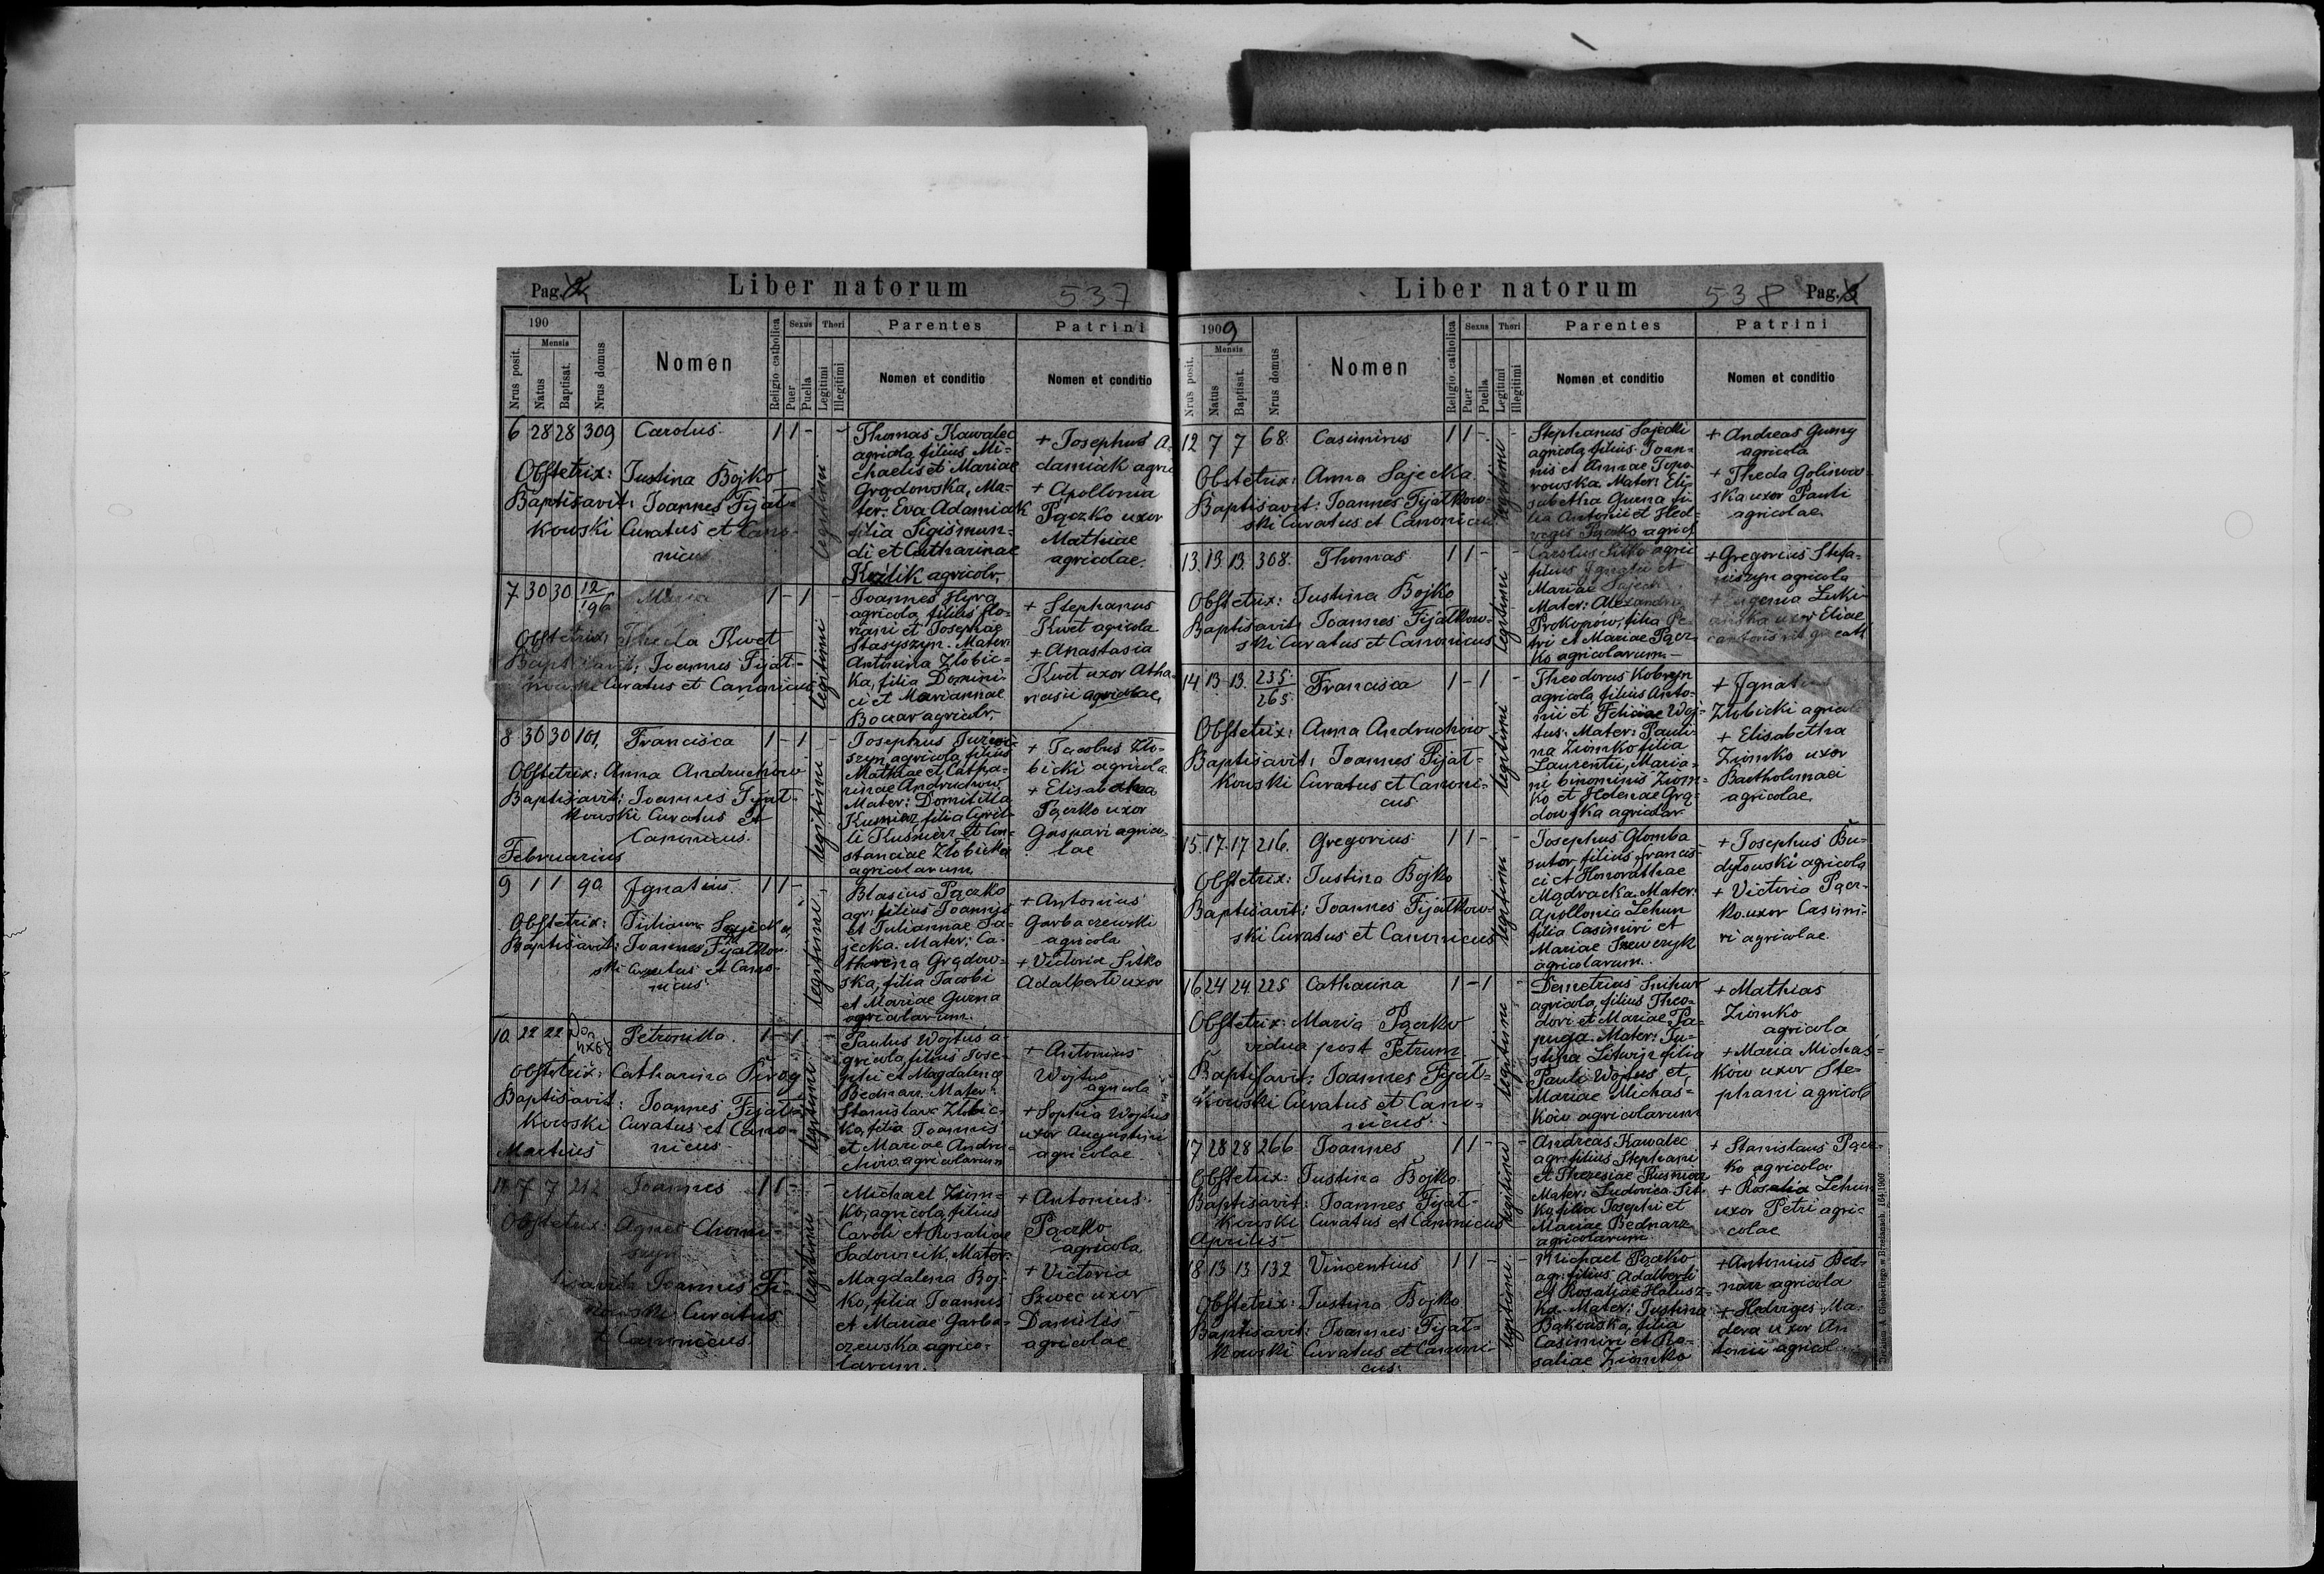 Pag. 2 Liber natorum 537
190
Mensis
Nrus posit.
Natus
Baptisat.
Nrus domus
Nomen
Religio catholica
Sexus
Puer
Puella
Thori
Legitimi
Illegitimi
Parentes
Nomen et conditio
Patrini
Nomen et conditio
6 28 28 309 Carolus 1 1 - -
Obstetrix: Justina Bojko
Baptisavit: Joannes Fijał-
kowski Curatus et Cano-
nicus
legitimi
Thomas Kawalec
agricola, filius Mi-
chaelis et Mariae
Grądowska, Ma-
ter: Eva Adamiak
filia Sigismun-
di et Catharinae
agricolr.
+ Josephus A-
damiak agri
+ Apollonia
Pączko uxor
Mathiae
agricolae.
7 30 30 12/196 Maria 1 - 1 -
Obstetrix: Thecla Kwet
Baptisavit: Joannes Fijał-
kowski Curatus et Canonicus
legitimi
Joannes Hyra
agricola, filius Flo-
riani et Josephae
Stasyszyn. Mater:
Antonina Złobic-
ka, filia Domini-
ci et Mariannae
agricolr.
+ Stephanus
Kwet agricola
+ Anastasia
Kwet uxor Atha-
nasii agricolae
8 30 30 101 Francisca 1 - 1 -
Obstetrix: Anna Andruchów
Baptisavit: Joannes Fijał-
kowski Curatus et
Canonicus.
legitimi
Josephus
agricola filius
Mathiae et Catha-
rinae Andruchów
Mater: Domitilla
Kusnierz filia Cyril-
li Kusnierz et Con-
stanciae Złobicka
agricolarum
+ Jacobus Zło-
bicki agricola
+ Elisabetha
Pączko uxor
Gaspari agrico-
lae
Februarius
9 1 1 90 Ignatius 1 1 -
Obstetrix: Juliana Sajecka
Baptisavit: Joannes Fijałkow-
ski Curatus et Cano-
nicus
legitimi
Blasius Pączko
agr: filius Joannis
et Julianae Sa-
jecka. Mater: Ca-
tharina Grądow-
ska, filia Jacobi
et Mariae Gurna
agricolarum.
+ Antonius
Garbaczewski
agricola
+ Victoria Sitko
Adalberti uxor
10 22 22 Petronilla. 1 - 1 -
Obstetrix: Catharina Pirog
Baptisavit: Joannes Fijał-
kowski Curatus et Cano-
nicus
legitimi
Paulus Wojtus a-
gricola, filius Jose-
phi et Magdalena
Bednarz. Mater:
Stanislava Złobic-
ka, filia Joannis
et Mariae Andru-
chów agricolarum
+ Antonius
Wojtus
agricola
+ Sophia Wojtus
uxor Augustini
agricolae
Martius
11 7 7 212 Joannes 1 1 - -
Obstetrix: Agnes Chomi-
szyn
Joannes Fi-
Curatus
et Canonicus.
legitimi
Michael Ziom-
ko, agricola, filius
Caroli et Rosaliae
Sadowcik. Mater:
Magdalena Boj-
ko, filia Joannis
et Mariae Garba-
czewska agrico-
larum.
+ Antonius
Pączko
agricola
+ Victoria
Szwec uxor
Danielis
agricolae
Liber natorum 538 Pag. 3
1909
Mensis
Nrus posit.
Natus
Baptisat.
Nrus domus
Nomen
Religio catholica
Sexus
Puer
Puella
Thori
Legitimi
Illegitimi
Parentes
Nomen et conditio
Patrini
Nomen et conditio
12 7 7 68. Casimirus 1 1 - -
Obstetrix: Anna Sajecka
Baptisavit: Joannes Fijałkow-
ski Curatus et Canonicus
legitimi
Stephanus Sajecki
agricola, filius Joan-
nis et Annae Topo-
rowska. Mater: Eli-
sabetha Gurna fi-
lia Antonii et Hed-
vigis Pączko agricol
+ Andreas Gurny
agricola
+ Thecla Golinow-
ska uxor Pauli
agricolae.
13. 13. 13. 308. Thomas 1 1 - -
Obstetrix: Justina Bojko
Baptisavit: Joannes Fijałkow-
ski Curatus et Canonicus
legitimi
Carolus Sitko agric
filius Ignatii et
Mariae Sajecki
Mater: Alexandra
Prokopów, filia Pe-
tri et Mariae Pącz-
ko agricolarum.
+ Gregorius Stefa-
niszyn agricola
+ Eugenia Luki-
uxor Eliae
cantoris rit. gr. cath
14. 13 13. 235./265. Francisca 1 - 1 -
Obstetrix: Anna Andruchów
Baptisavit: Joannes Fijał-
kowski Curatus et Canoni-
cus
legitimi
Theodorus Kobryn
agricola, filius Anto-
nii et Feliciae Woj-
tus. Mater: Pauli-
na Ziomko filia
Laurentii, Maria-
ni binominis Ziom-
ko et Helenae Grą-
dowska agricolar.
+ Ignatius
Złobicki agricola
+ Elisabetha
Ziomko uxor
Bartholomaei
agricolae.
15. 17. 17 216. Gregorius 1 1 - -
Obstetrix: Justina Bojko
Baptisavit: Joannes Fijałkow-
ski Curatus et Canonicus
legitimi
Josephus Glomba
sutor, filius Francis-
ci et Honorathae
Mądracka. Mater:
Apollonia Lehun
filia Casimiri et
Mariae Szewczyk
agricolarum.
+ Josephus Bu-
dyłowski agricola
+ Victoria Pącz-
ko uxor Casimi-
ri agricolae.
16. 24 24. 225 Catharina 1 - 1 -
Obstetrix: Maria Pączko
vidua post Petrum
Baptisavit: Joannes Fijał-
kowski Curatus et Cano-
nicus.
legitimi
Demetrius Snihur
agricola, filius Theo-
dori et Mariae Pa-
puga. Mater: Ju-
stina Litwin filia
Pauli Wojtus et
Mariae Michas-
ków agricolarum
+ Mathias
Ziomko
agricola
+ Maria Michas-
ków uxor Ste-
phani agricol
17 28 28 266 Joannes 1 1 -
Obstetrix: Justina Bojko
Baptisavit: Joannes Fijał-
kowski Curatus et Canonicus
legitimi
Andreas Kawalec
agr. filius Stephani
et Theresiae Kusnierz
Mater: Ludovica Sit-
ko, filia Josephi et
Mariae Bednarz
agricolarum
+ Stanislaus Pącz-
ko agricola
+ Rosalia Lehun
uxor Petri agri-
colae
Aprilis
18 13 13 132 Vincentius 1 1 - -
Obstetrix: Justina Bojko
Baptisavit: Joannes Fijał-
kowski Curatus et Canoni-
cus.
legitimi
Michael Pączko
agr. filius Adalberti
et Rosaliae Halusz-
ka. Mater: Justina
Bąkowska, filia
Casimiri et Ro-
saliae Ziomko
+ Antonius Bed-
narz agricola
+ Hedviges Ma-
dera uxor An-
tonii agricol
w Brzeżanach. 164/1906